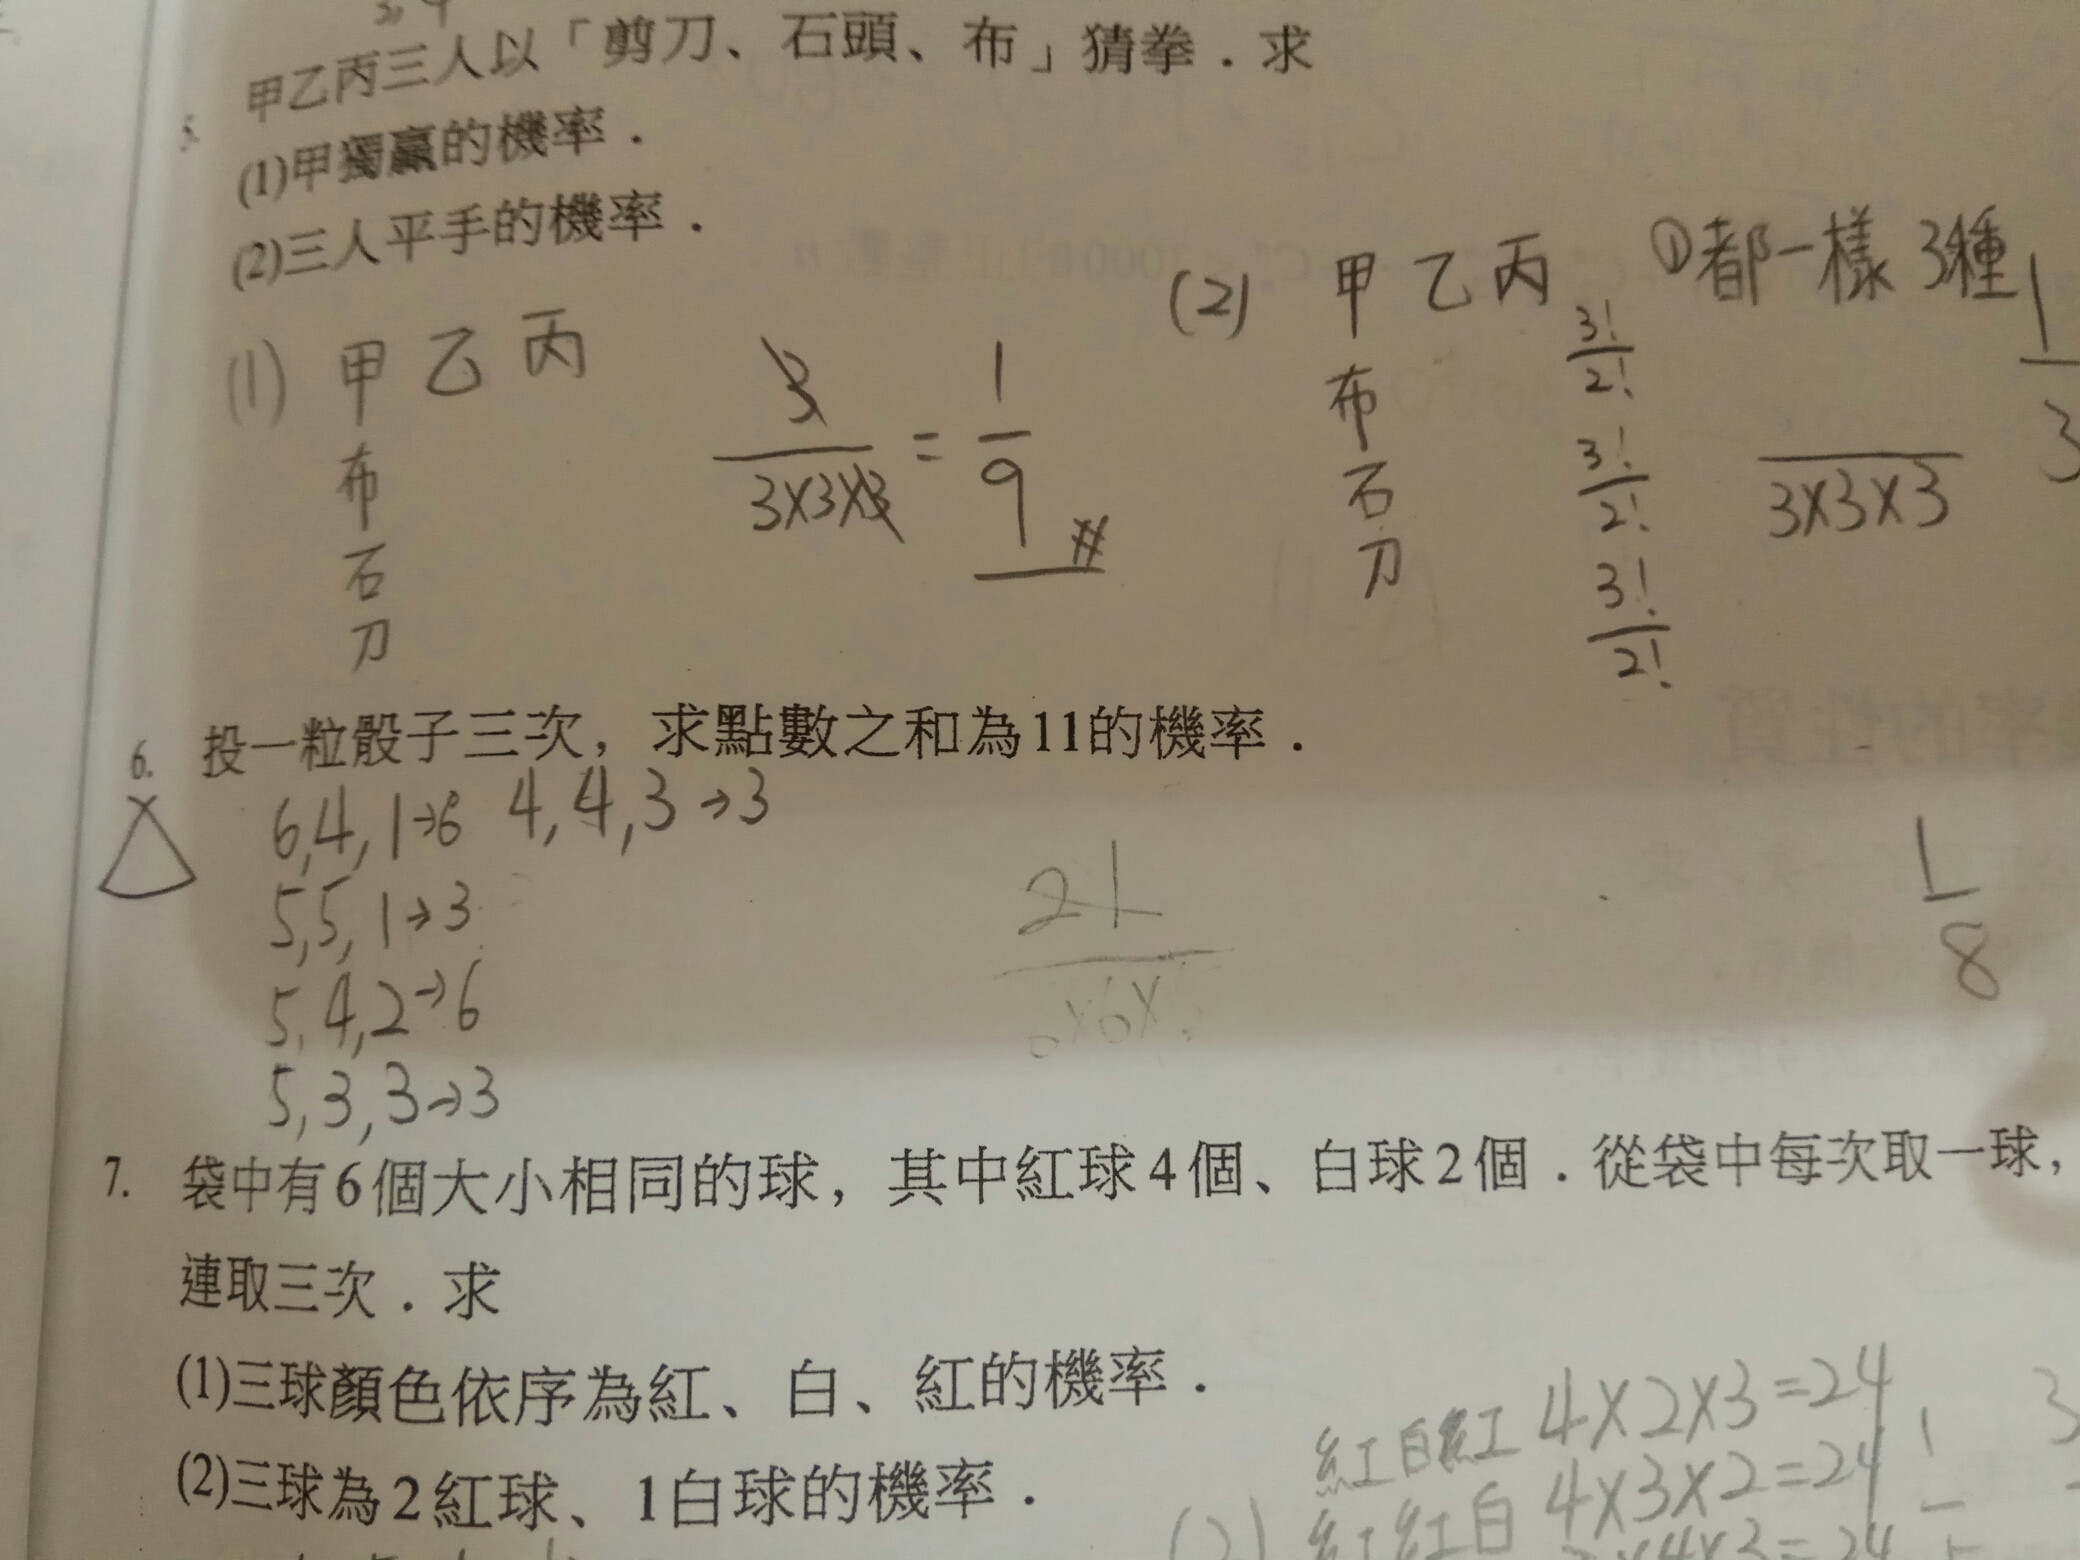 甲乙丙三人以「剪刀、石頭、布」猜拳．求
5.
(1)甲獨贏的機率．
(2)三人平手的機率．
(1) 甲 乙 丙
布
石
刀
3
3×3×3
= 1
9 #
(2) 甲 乙 丙
布
石
刀
3!
2!
3!
2!
3!
2!
①都一樣 3種
3×3×3
1
3
6. 投一粒骰子三次，求點數之和為11的機率．
6,4,1→6 4,4,3→3
5,5,1→3
5,4,2→6
5,3,3→3
21
6×6×
1
8
7. 袋中有6個大小相同的球，其中紅球4個、白球2個．從袋中每次取一球，
連取三次．求
(1)三球顏色依序為紅、白、紅的機率．
(2)三球為2紅球、1白球的機率．
紅白紅 4×2×3=24
(2) 紅紅白 4×3×2=24
×4×3=24